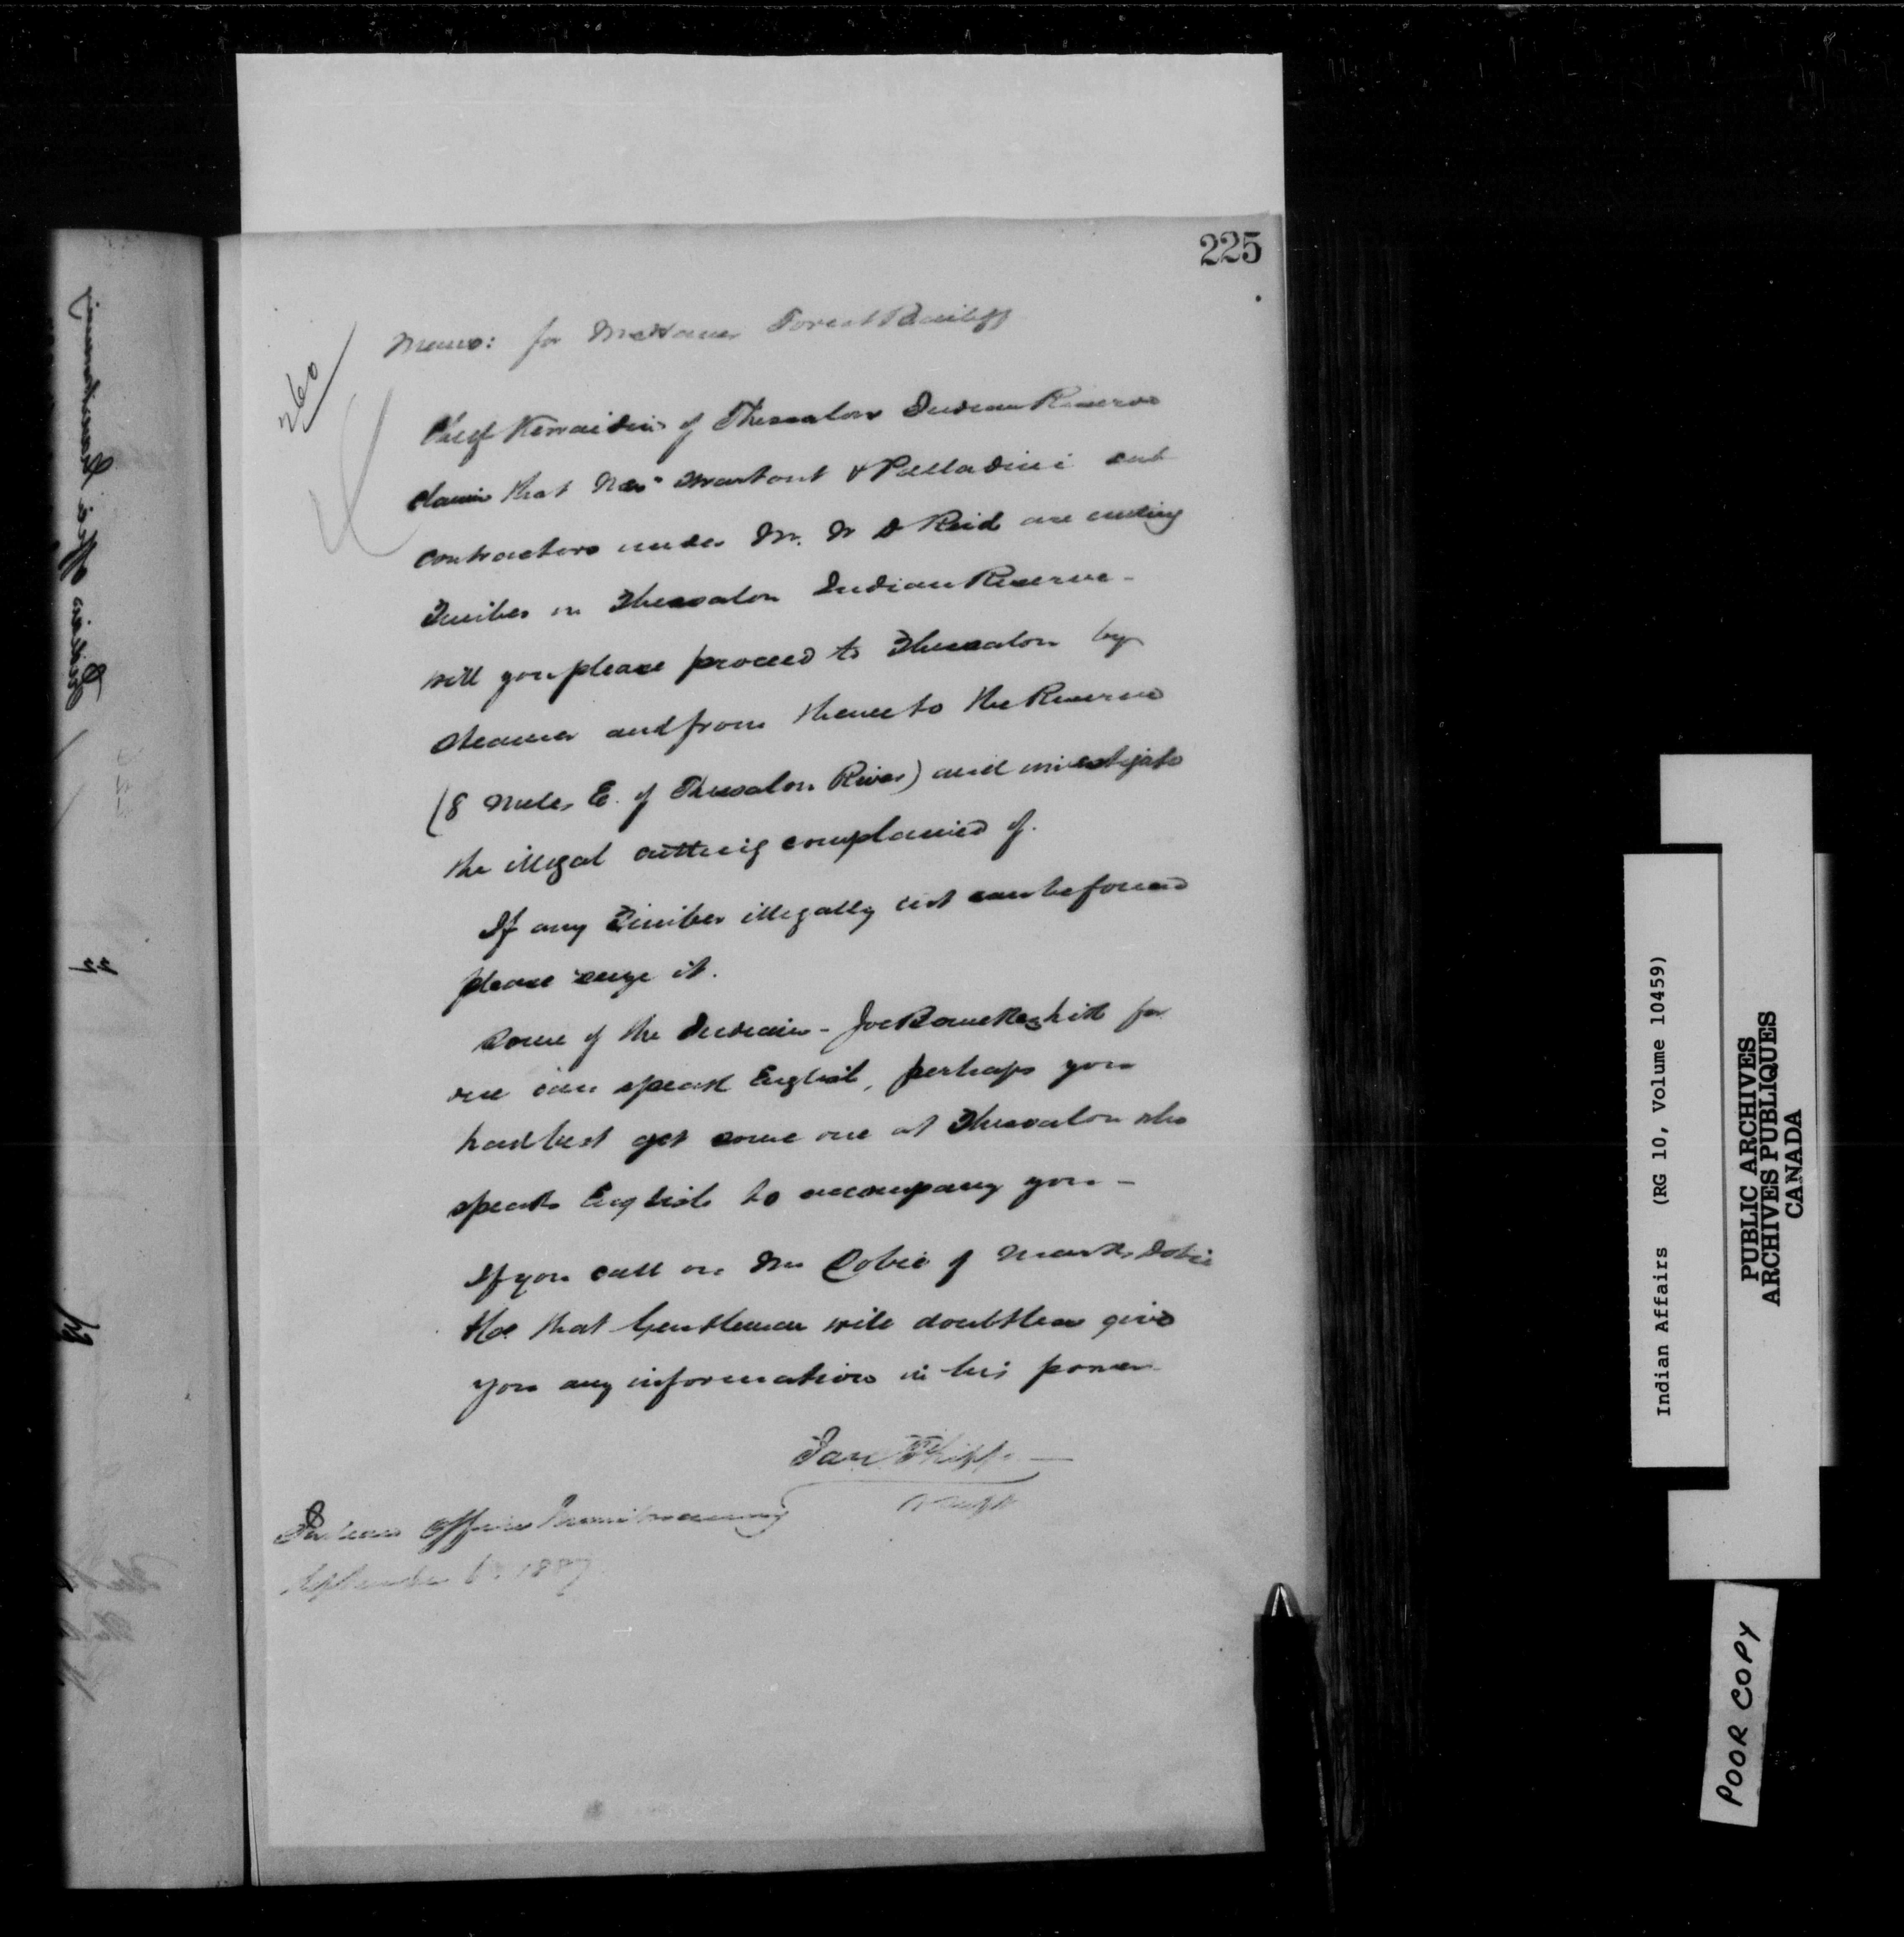 225
260
Memo: for Forest Bailiff
Chief of Thessalon Indian Reserve
claims that & Palladini sub
contractors under Mr. W D Reid are cutting
Timber on Thessalon Indian Reserve -
will you please proceed to Thessalon by
steamer and from thence to the Reserve
(8 miles E. of Thessalon River) and investigate
the illegal cutting complained of.
If any Timber illegally cut can be found
please seize it.
Some of the Indians - Joe for
one can speak English, perhaps you
had best get some one at Thessalon who
speaks English to accompany you -
If you call on Mr Dobie of Marks Dobie
&Co that Gentleman will doubtless give
you any information in his power
Jas Phipps
Indian Office Manitowaning
September 6 1887
Indian Office Manitowaning
Indian Affairs (RG 10, Volume 10459)
PUBLIC ARCHIVES
ARCHIVES PUBLIQUES
CANADA
POOR COPY